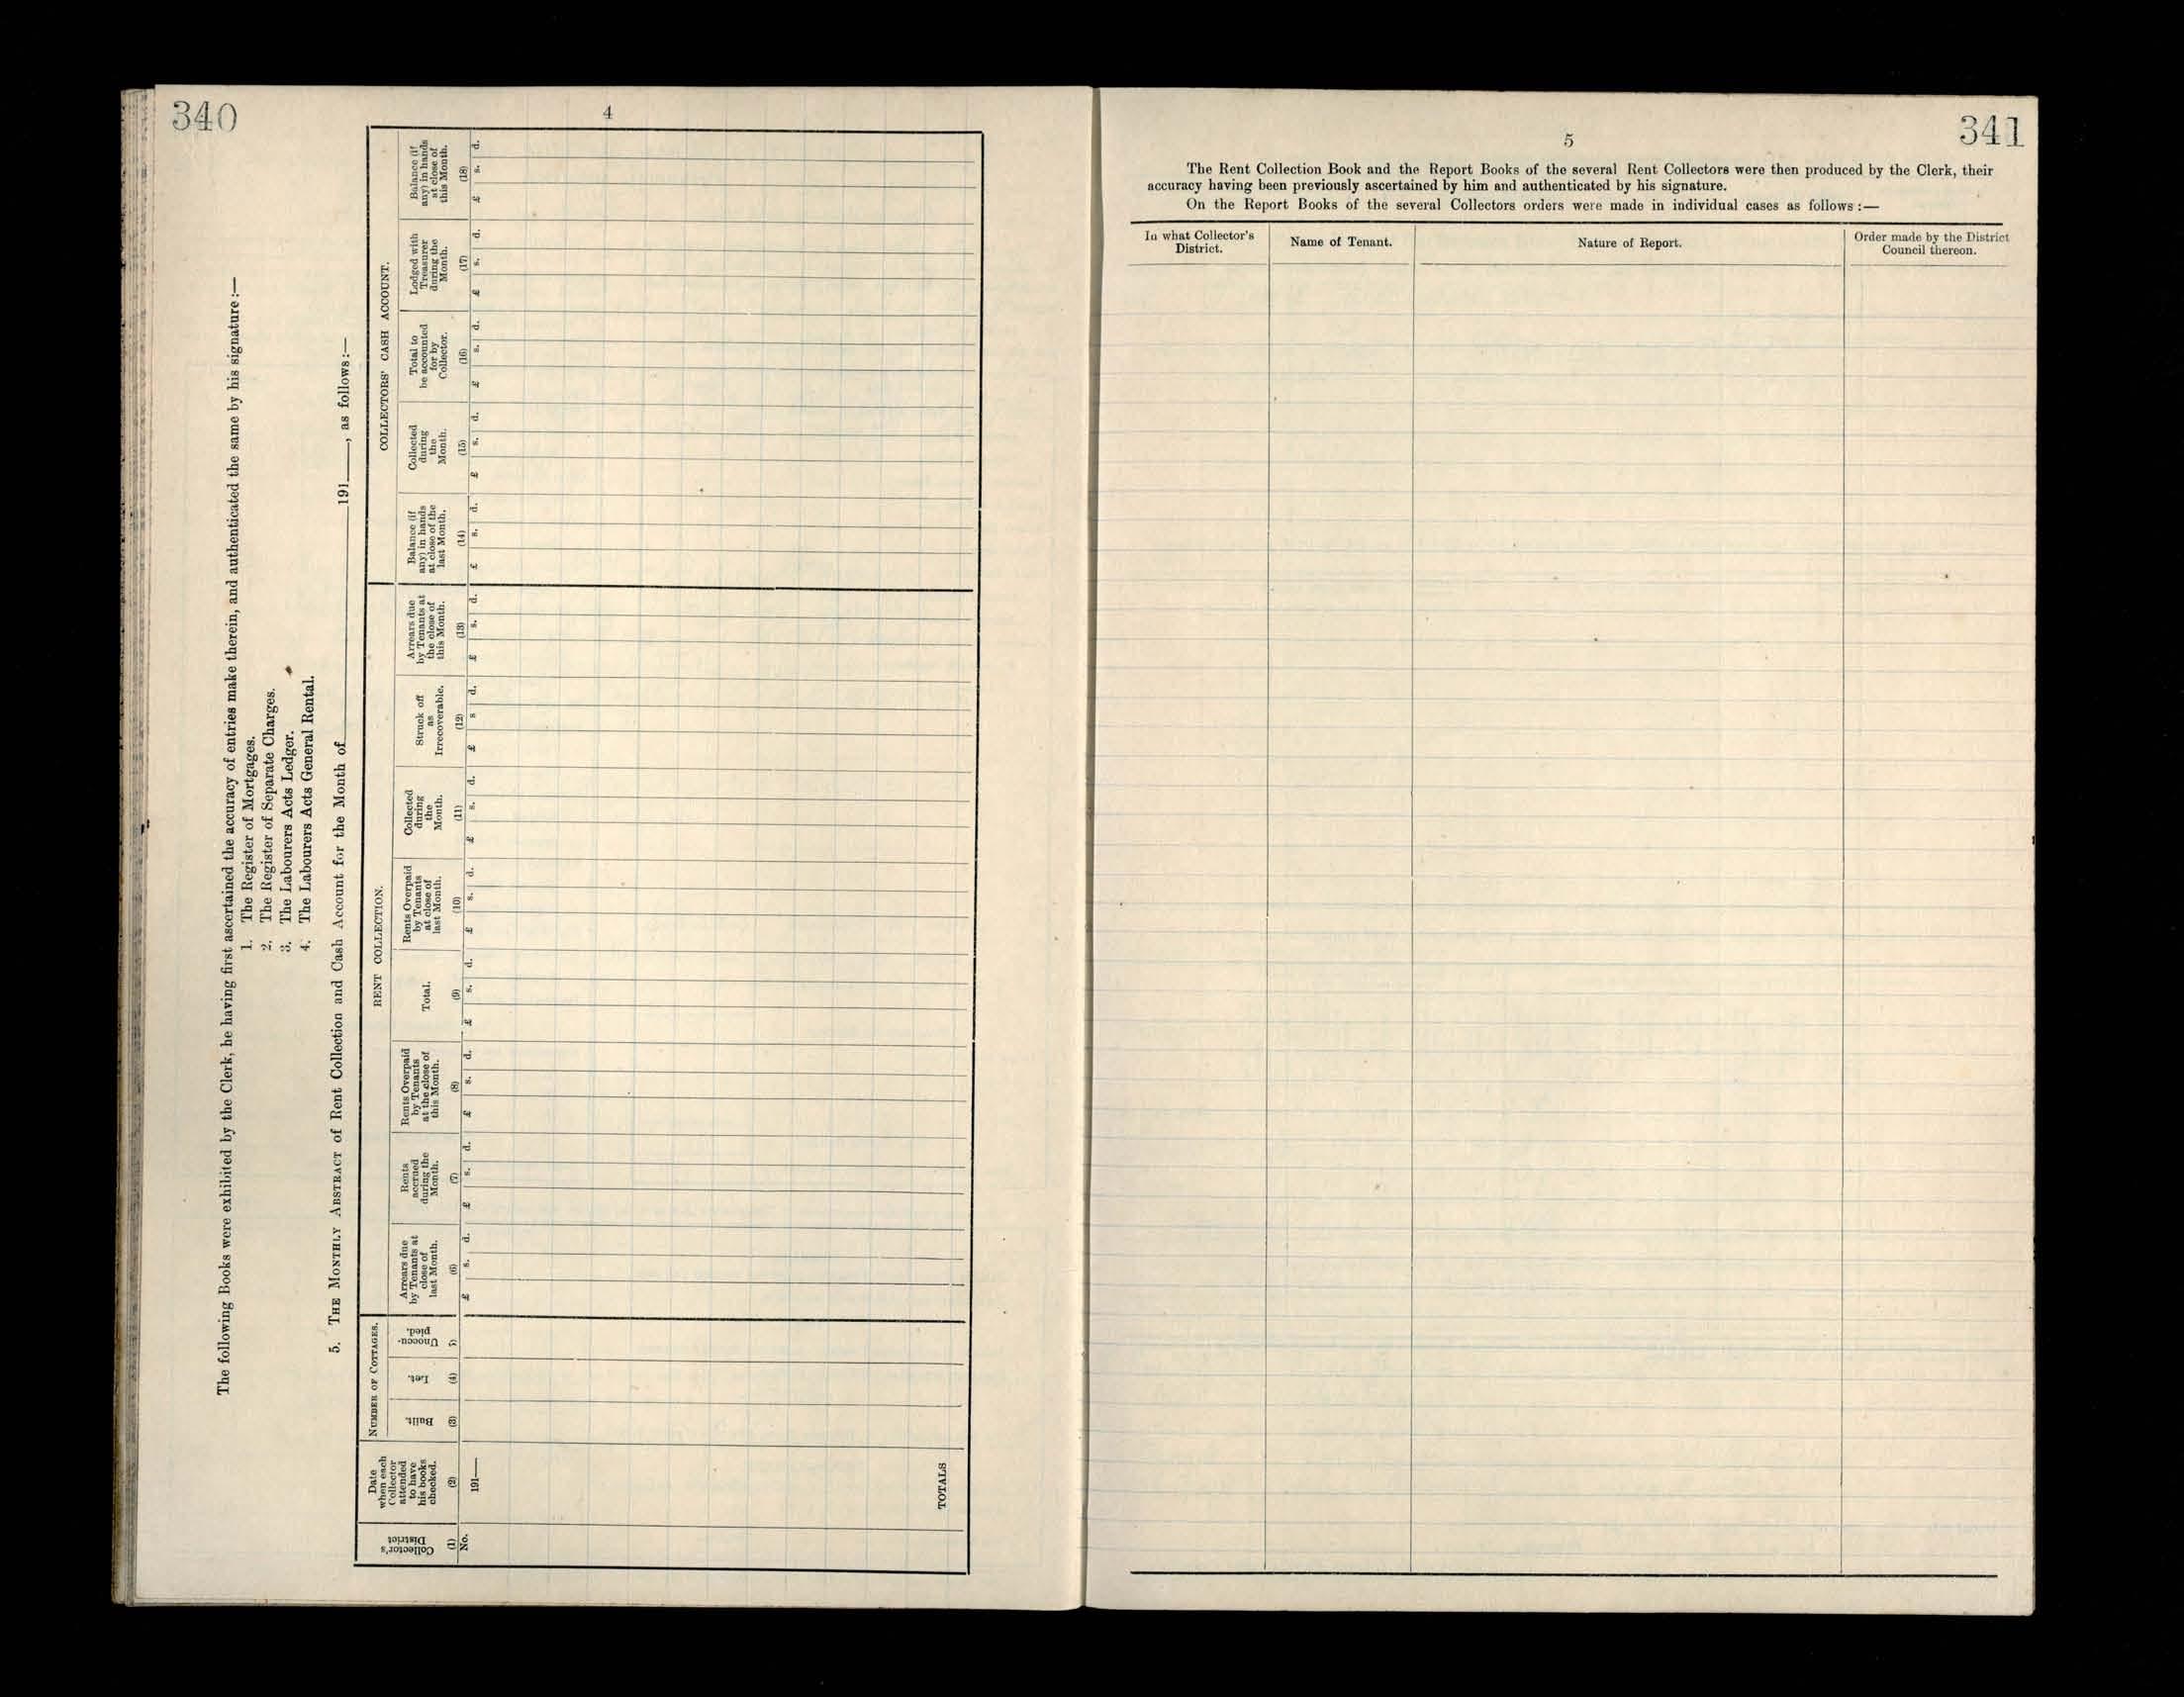 340
4
The following Books were exhibited by the Clerk, he having first ascertained the accuracy of entries make therein, and authenticated the same by his signature :—
1. The Register of Mortgages.
2. The Register of Separate Charges.
3. The Labourers Acts Ledger.
4. The Labourers Acts General Rental.
5. THE MONTHLY ABSTRACT of Rent Collection and Cash Account for the Month of 191 , as follows :—
Collector's
District
(1)
No.
Date
when each
Collector
attended
to have
his books
checked.
(2)
191—
TOTALS
NUMBER OF COTTAGES.
Built.
(3)
Let.
(4)
Unoccu-
pied.
(5)
RENT COLLECTION.
Arrears due
by Tenants at
close of
last Month.
(6)
£ s. d.
Rents
accrued
during the
Month.
(7)
£ s. d.
Rents Overpaid
by Tenants
at the close of
this Month.
(8)
£ s. d.
Total.
(9)
£ s. d.
Rents Overpaid
by Tenants
at close of
last Month.
(10)
£ s. d.
Collected
during
the
Month.
(11)
£ s. d.
Struck off
as
Irrecoverable.
(12)
£ s d.
Arrears due
by Tenants at
the close of
this Month.
(13)
£ s. d.
COLLECTORS' CASH ACCOUNT.
Balance (if
any) in hands
at close of the
last Month.
(14)
£ s. d.
Collected
during
the
Month.
(15)
£ s. d.
Total to
be accounted
for by
Collector.
(16)
£ s. d.
Lodged with
Treasurer
during the
Month.
(17)
£ s. d.
Balance (if
any) in hands
at close of
this Month.
(18)
£ s. d.
341
5
The Rent Collection Book and the Report Books of the several Rent Collectors were then produced by the Clerk, their
accuracy having been previously ascertained by him and authenticated by his signature.
On the Report Books of the several Collectors orders were made in individual cases as follows :—
In what Collector's
District.
Name of Tenant.
Nature of Report.
Order made by the District
Council thereon.